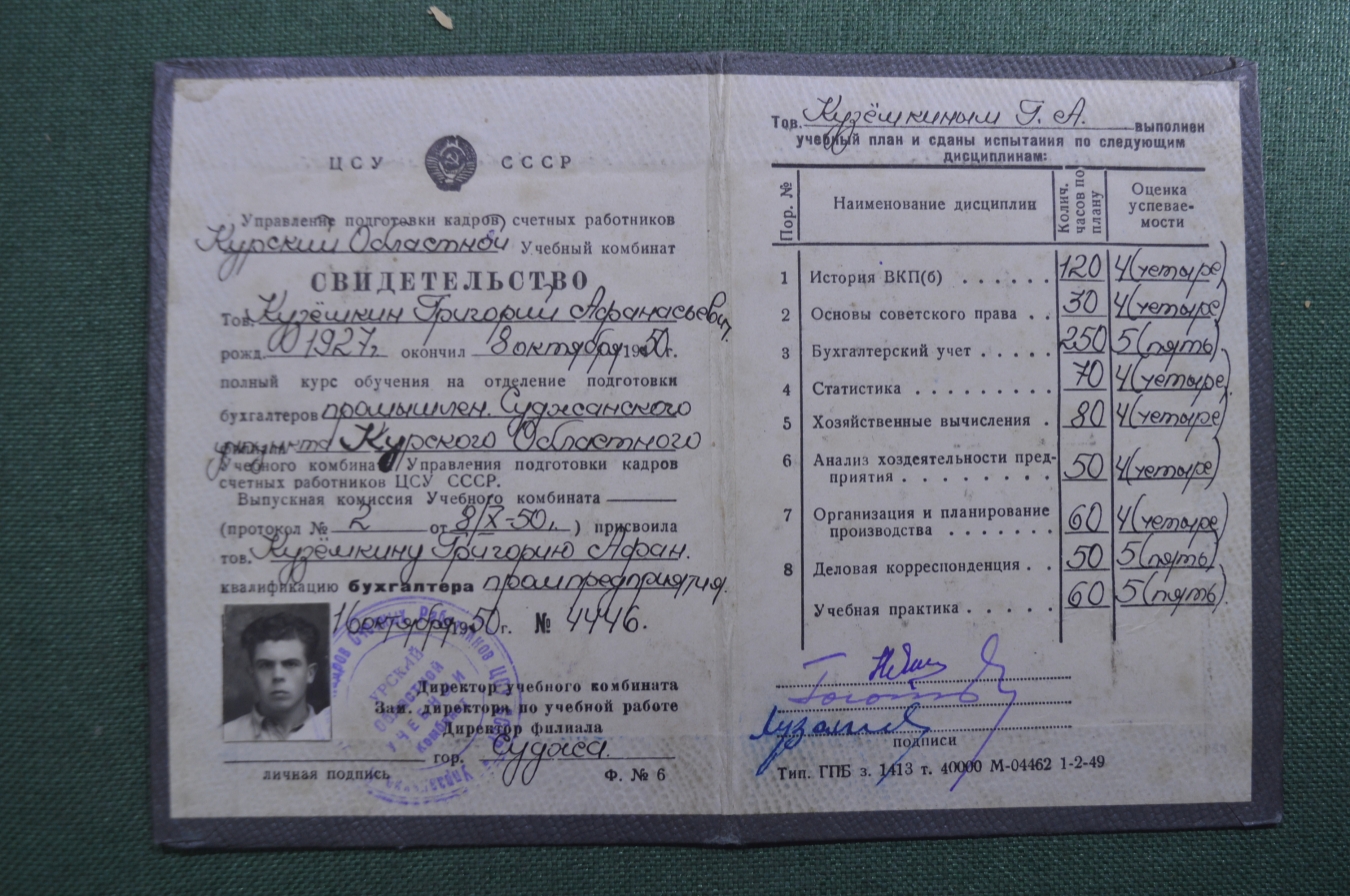 ЦСУ СССР
Управление подготовки кадров счетных работников
Курский Областной Учебный комбинат
СВИДЕТЕЛЬСТВО
Тов. Кузёмкин Григорий Афанасьевич
рожд. 1927г. окончил 8 октября 1950г.
полный курс обучения на отделение подготовки
бухгалтеров промышлен. Суджанского
Курского Областного
Учебного комбината Управления подготовки кадров
счетных работников ЦСУ СССР.
Выпускная комиссия Учебного комбината
(протокол № 2 от 8/X-50г.) присвоила
тов. Кузёмкину Григорию Афан.
квалификацию бухгалтера промпредприятия.
16 октября 1950г. № 4446.
Директор учебного комбината
Зам. директора по учебной работе
Директор филиала
гор. Суджа.
личная подпись Ф. № 6
КУРСКИЙ
ОБЛАСТНОЙ
УЧЕБНЫЙ
Комбинат
Тов. Кузёмкиным Г. А. выполнен
учебный план и сданы испытания по следующим
дисциплинам:
Пор. № Наименование дисциплин Колич. часов по плану Оценка успевае-мости
1 История ВКП(б) . . . . . . 120 4(четыре)
2 Основы советского права . . 30 4(четыре)
3 Бухгалтерский учет . . . . . 250 5(пять)
4 Статистика . . . . . . . . . 70 4(четыре)
5 Хозяйственные вычисления . 80 4(четыре)
6 Анализ хоздеятельности пред-
приятия . . . . . . . . 50 4(четыре)
7 Организация и планирование
производства . . . . . . 60 4(четыре)
8 Деловая корреспонденция . . 50 5(пять)
Учебная практика . . . . . 60 5(пять)
подписи
Тип. ГПБ з. 1413 т. 40000 М-04462 1-2-49